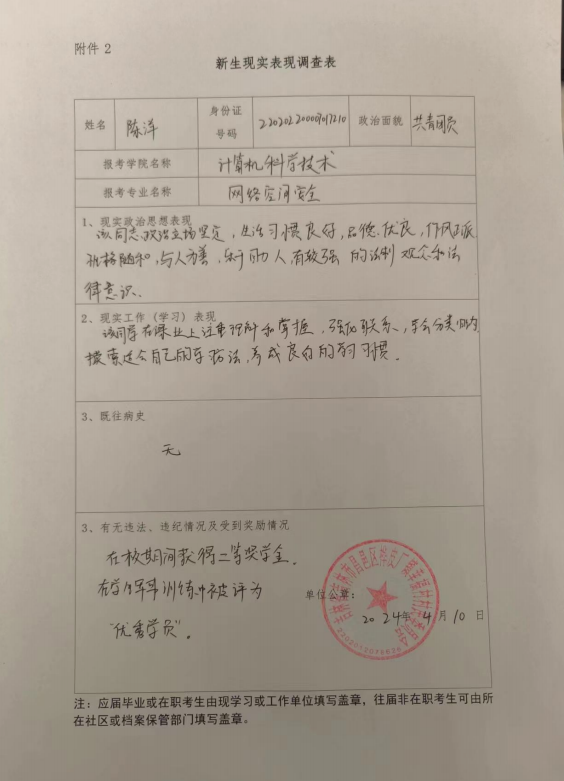 附件 2
新生现实表现调查表
姓名
陈洋
身份证
号码
政治面貌
共青团员
报考学院名称
计算机科学技术
报考专业名称
网络空间安全
1、现实政治思想表现
该同志政治立场坚定,生活习惯良好,品德优良,作风正派
性格随和,与人为善,乐于助人,有较强的法制观念和法
律意识.
2、现实工作(学习)表现
该同学在课业上注重理解和掌握,强化联系,学会分类归纳
摸索适合自己的学习方法,养成良好的学习习惯.
3、既往病史
无
3、有无违法、违纪情况及受到奖励情况
在校期间获得二等奖学金.
在学军事训练中被评为
"优秀学员".
单位公章:
2024年 4月 10 日
注:应届毕业或在职考生由现学习或工作单位填写盖章,往届非在职考生可由所
在社区或档案保管部门填写盖章。